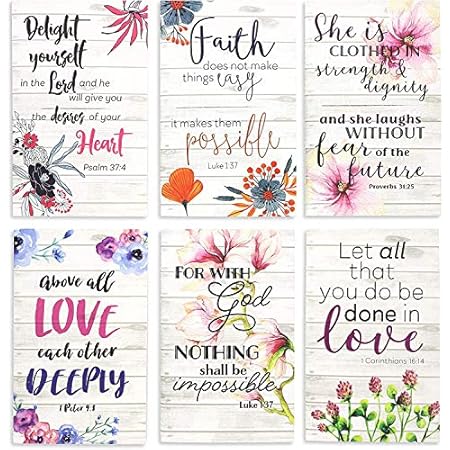 Delight
yourself
in the Lord and he
will give you
the desires of your
Heart
Psalm 37:4
Faith
does not make
things easy
it makes them
possible
Luke 1:37
She is
CLOTHED IN
strength &
dignity
and she laughs
WITHOUT
fear of the
future
Proverbs 31:25
Above all
LOVE
each other
DEEPLY
1 Peter 4:8
FOR WITH
God
NOTHING
shall be
impossible
Luke 1:37
Let all
that
you do be
done in
love
1 Corinthians 16:14